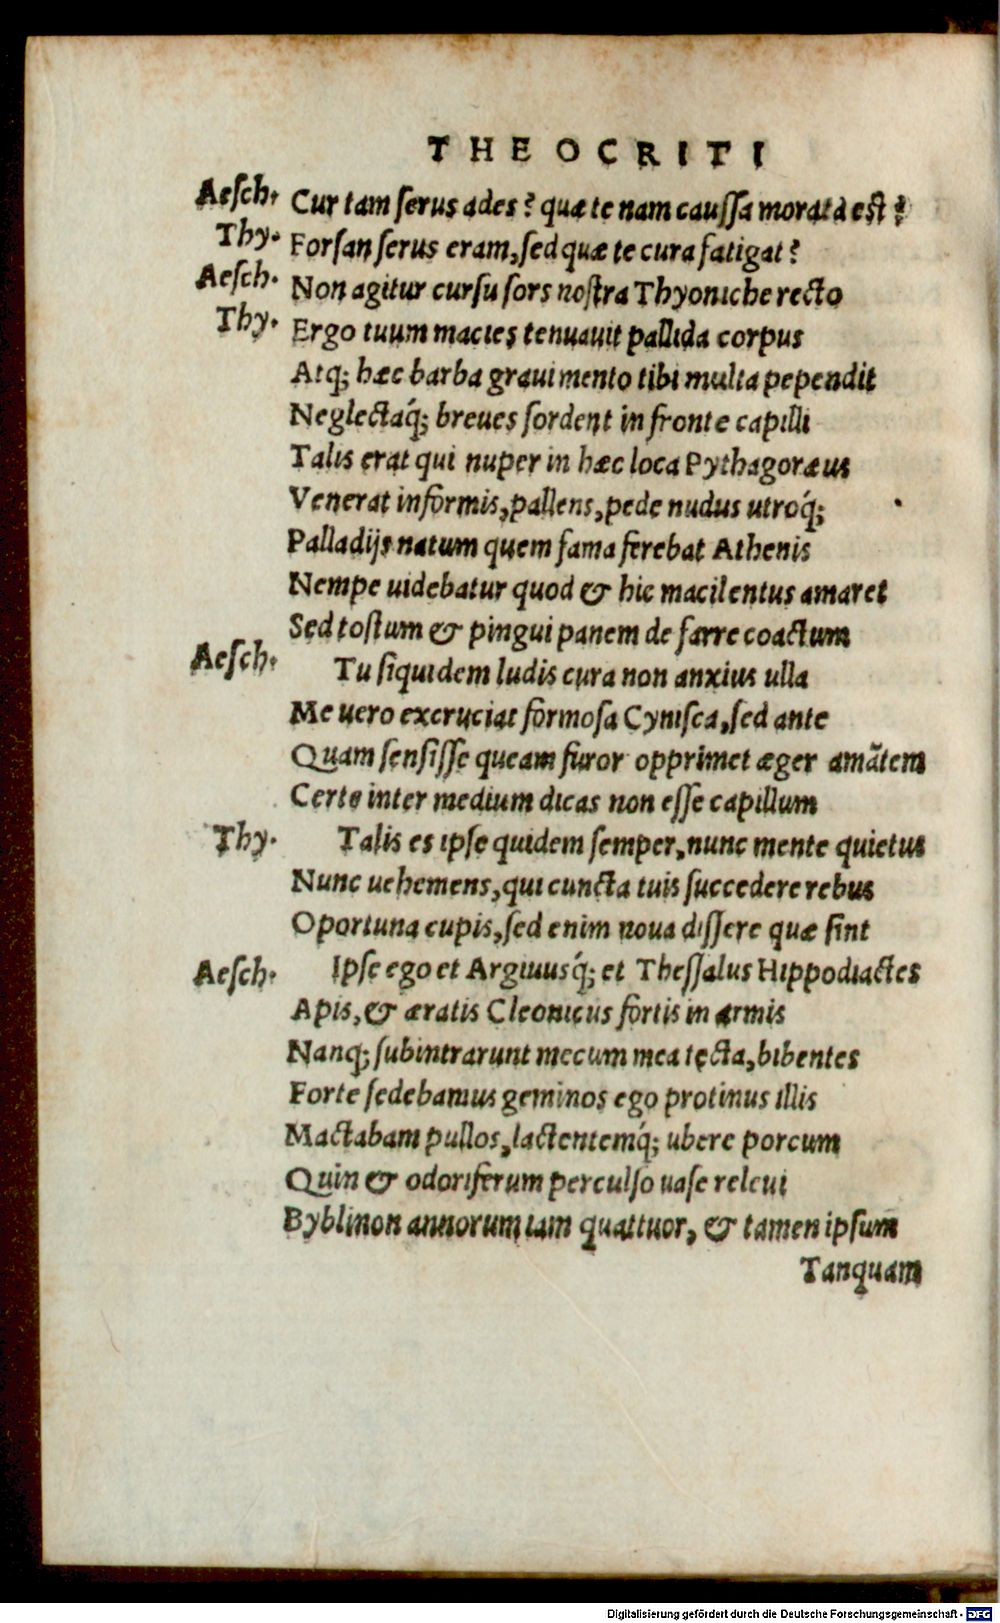 THEOCRITI
Aesch. Cur tam serus ades? quæ te nam caussa morata est?
Thy. Forsan serus eram, sed quæ te cura fatigat?
Aesch. Non agitur cursu sors nostra Thyoniche recto
Thy. Ergo tuum macies tenuauit pallida corpus
Atq; hæc barba graui mento tibi multa pependit
Neglectaq́; breues sordent in fronte capilli
Talis erat qui nuper in hæc loca Pythagoræus
Venerat informis, pallens, pede nudus utroq́;
Palladijs natum quem fama ferebat Athenis
Nempe uidebatur quod & hic macilentus amaret
Sed tostum & pingui panem de farre coactum
Aesch. Tu siquidem ludis cura non anxius ulla
Me uero excruciat formosa Cynisca, sed ante
Quam sensisse queam furor opprimet æger amãtem
Certe inter medium dicas non esse capillum
Thy. Talis es ipse quidem semper, nunc mente quietus
Nunc uehemens, qui cuncta tuis succedere rebus
Oportuna cupis, sed enim noua dissere quæ sint
Aesch. Ipse ego et Argiuusq́; et Thessalus Hippodiactes
Apis, & æratis Cleonicus fortis in armis
Nanq; subintrarunt mecum mea tecta, bibentes
Forte sedebamus geminos ego protinus illis
Mactabam pullos, lactentemq́; ubere porcum
Quin & odoriferum perculso uase releui
Byblinon annorum iam quattuor, & tamen ipsum
Tanquam
Digitalisierung gefördert durch die Deutsche Forschungsgemeinschaft - DFG